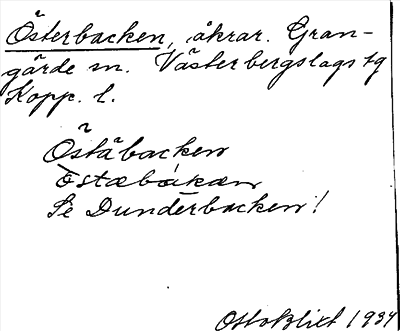 Österbacken, åkrar. Gran-
gärde sn. Västerbergslags tg
Kopp. l.
Östäbacken
Östæbakæn
Se Dunderbacken!
Ottoblixt 1934